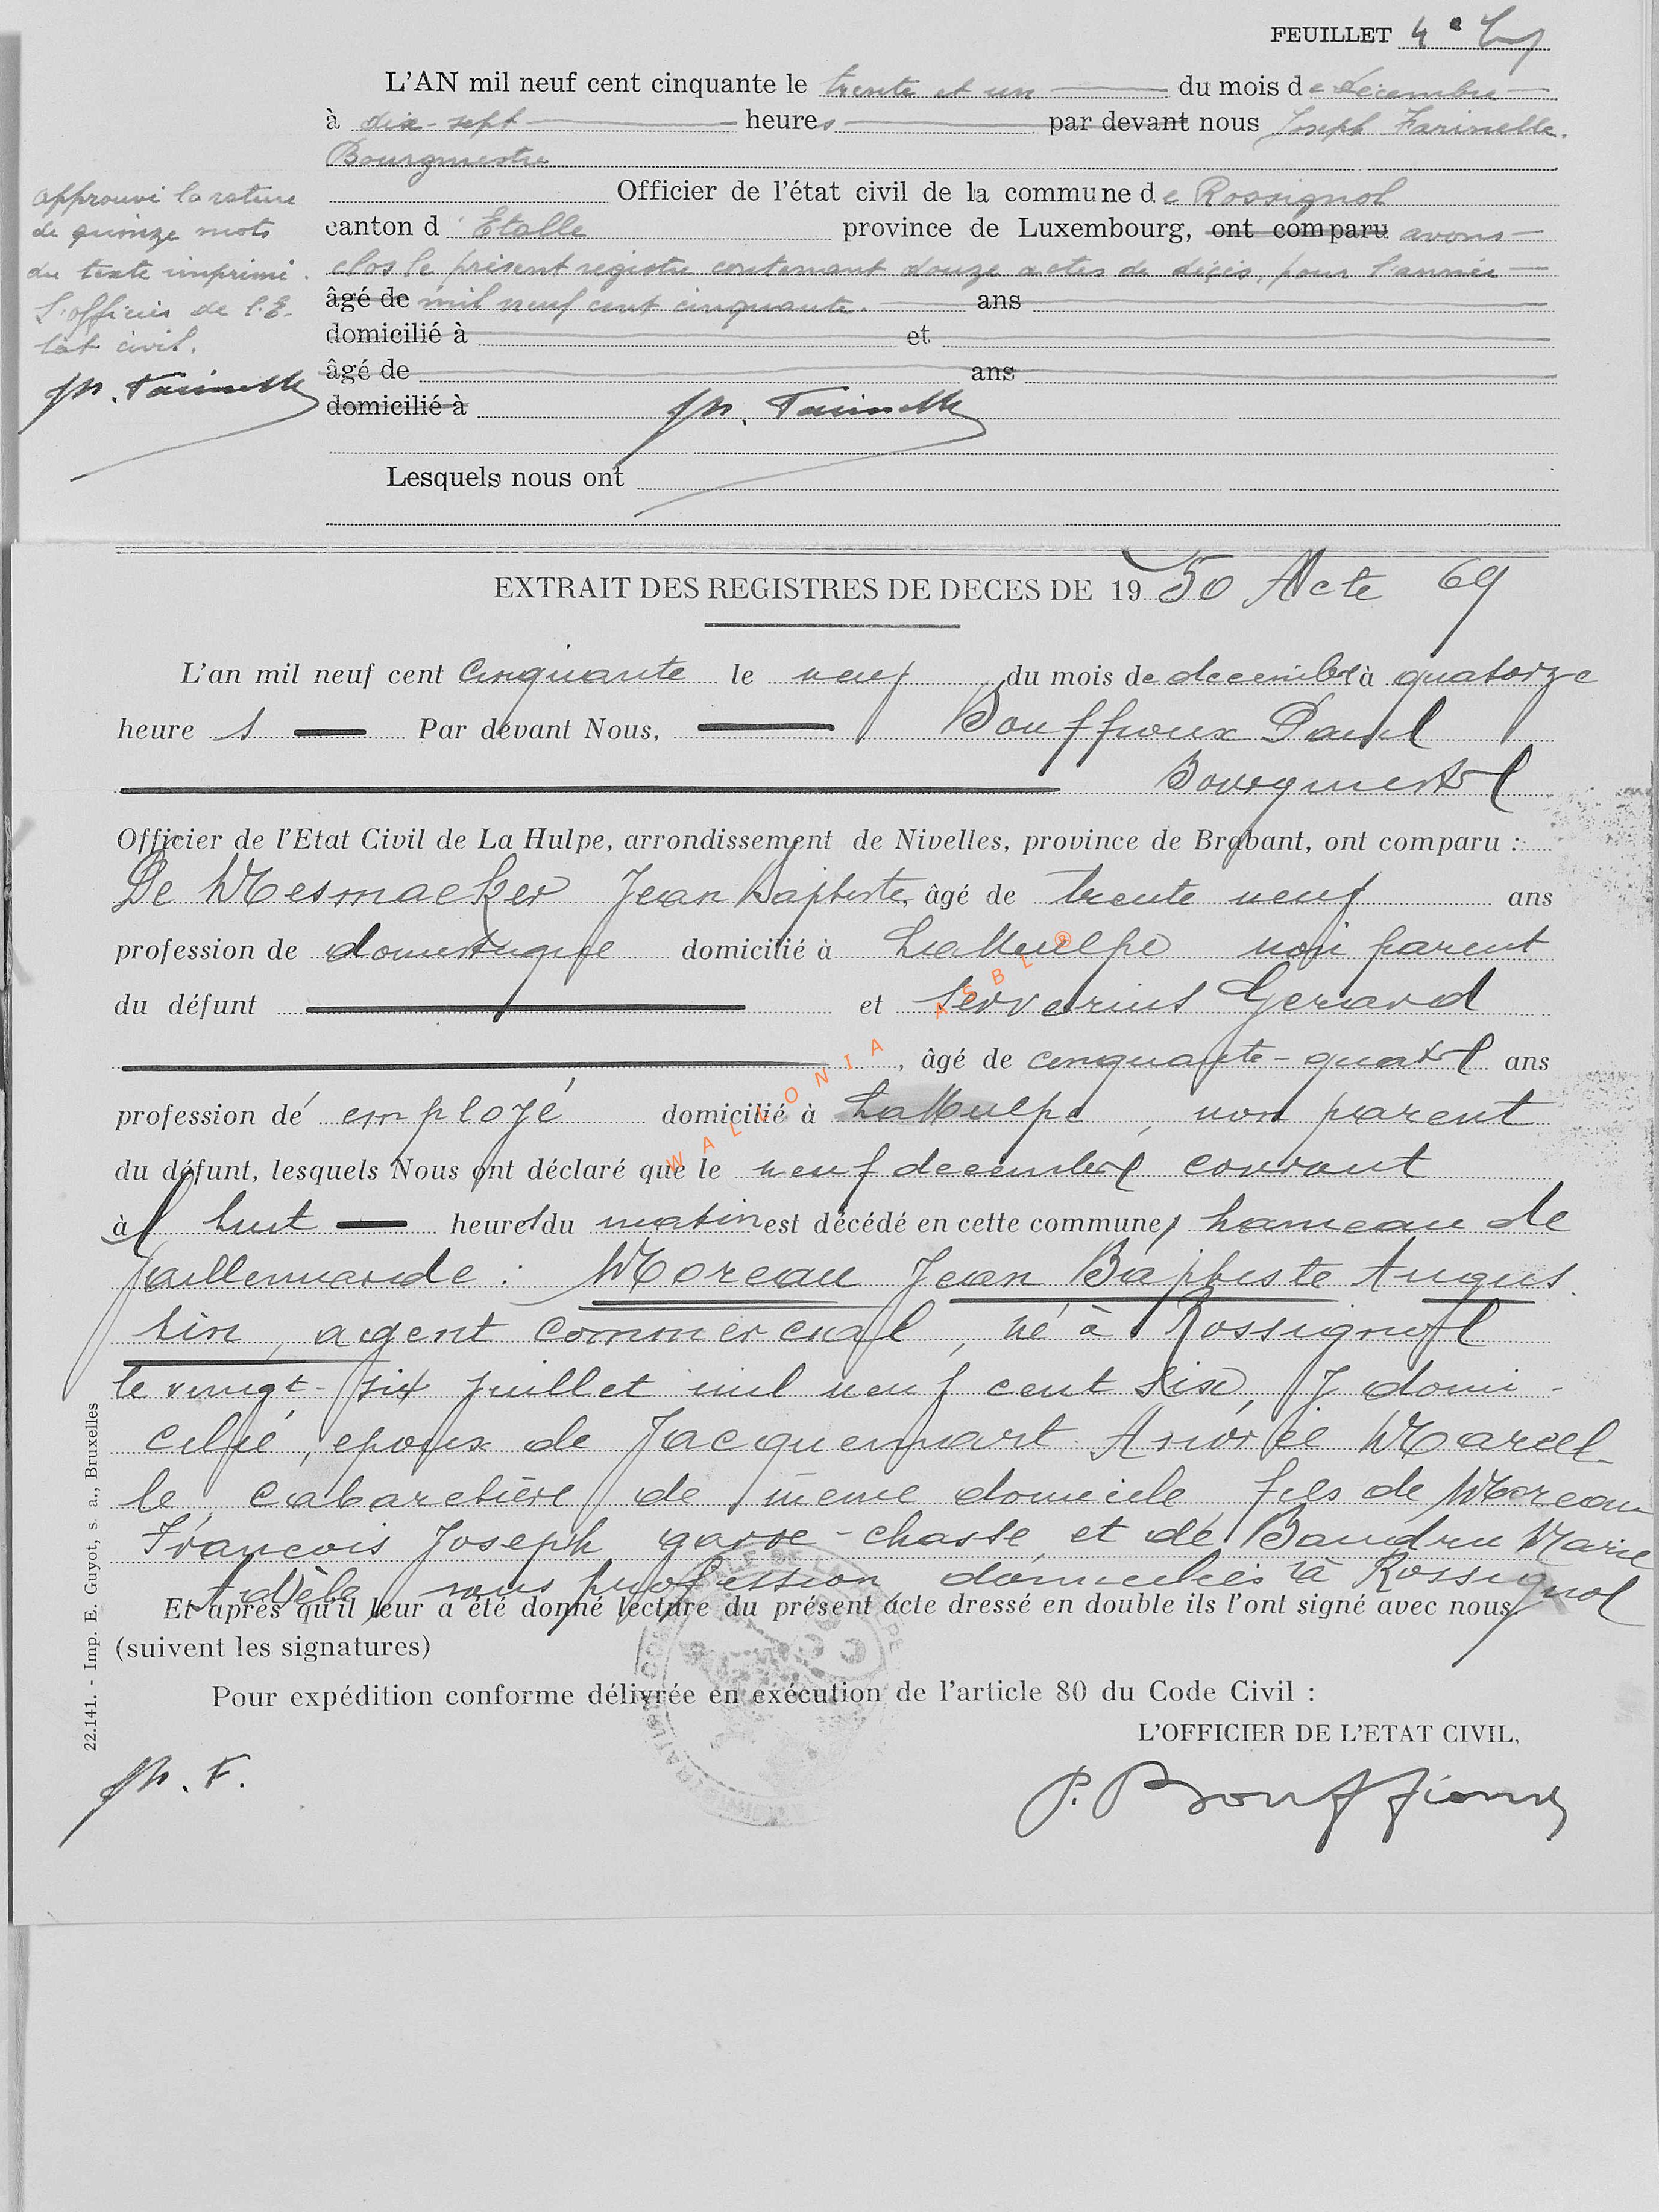 FEUILLET 4e
L'AN mil neuf cent cinquante le trente et un du mois de décembre
à dix-sept heures par devant nous Joseph Farinelle.
Bourgmestre
Officier de l'état civil de la commune de Rossignol
canton d'Etalle province de Luxembourg, ont comparu avons
clos le présent registre contenant douze actes de décès, pour l'année
âgé de mil neuf cent cinquante. ans
domicilié à et
âgé de ans
domicilié à Jh. Farinelle
Lesquels nous ont
approuvé la rature
de quinze mots
du texte imprimé.
L'officier de l'E-
tat civil.
Jh. Farinelle
EXTRAIT DES REGISTRES DE DECES DE 1950 Acte 69
L'an mil neuf cent cinquante le neuf du mois de decembre à quatorze
heure s Par devant Nous, Bouffioux Paul
Bourgmestre
Officier de l'Etat Civil de La Hulpe, arrondissement de Nivelles, province de Brabant, ont comparu :
De Mesmaeker Jean Baptiste, âgé de trente neuf ans
profession de domestique domicilié à La Hulpe non parent
du défunt et Serverius Gerard
, âgé de cinquante-quatre ans
profession de employé domicilié à La Hulpe, non parent
du défunt, lesquels Nous ont déclaré que le neuf decembre courant
à huit heures du matin est décédé en cette commune, hameau de
Gaillemarde : Moreau Jean Baptiste Augus
tin, agent commercial, né à Rossignol
le vingt-six juillet mil neuf cent six, y domi-
cilié, epoux de Jacquemart Andrée Marcel-
le, cabaretière de même domicile, fils de Moreau
Francois Joseph garde-chasse et de Baudru Marie
Adèle sans profession, domiciliés à Rossignol
Et après qu'il leur a été donné lecture du présent acte dressé en double ils l'ont signé avec nous.
(suivent les signatures)
Pour expédition conforme délivrée en exécution de l'article 80 du Code Civil :
L'OFFICIER DE L'ETAT CIVIL,
Jh. F.
P. Bouffioux
22.141. - Imp. E. Guyot, s. a., Bruxelles
WALLONIA ASBL ®